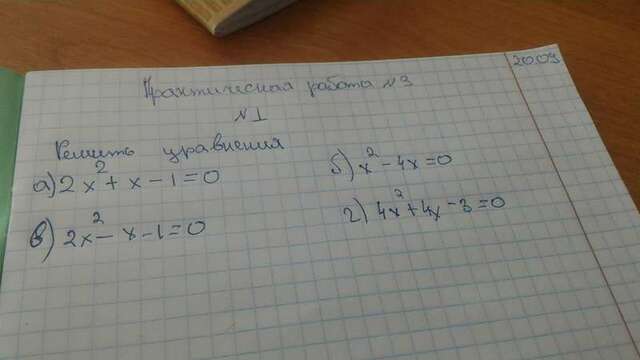 20.09
Практическая работа №3
№1
Решить уравнения
а) 2x² + x - 1 = 0
б) x² - 4x = 0
в) 2x² - x - 1 = 0
г) 4x² + 4x - 3 = 0